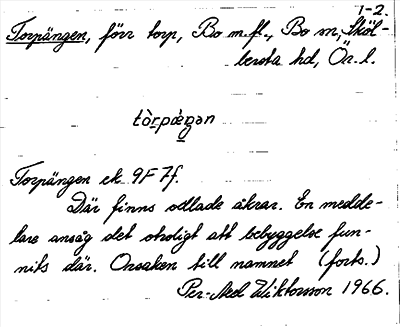 1-2.
Torpängen, förr torp, Bo m.fl., Bo sn, Sköl-
lersta hd, Ör. l.
tòrpæŋən
Torpängen ek 9F 7f.
Där finns odlade åkrar. En medde-
lare ansåg det otroligt att bebyggelse fun-
nits där. Orsaken till namnet (forts.)
Per-Axel Wiktorsson 1966.